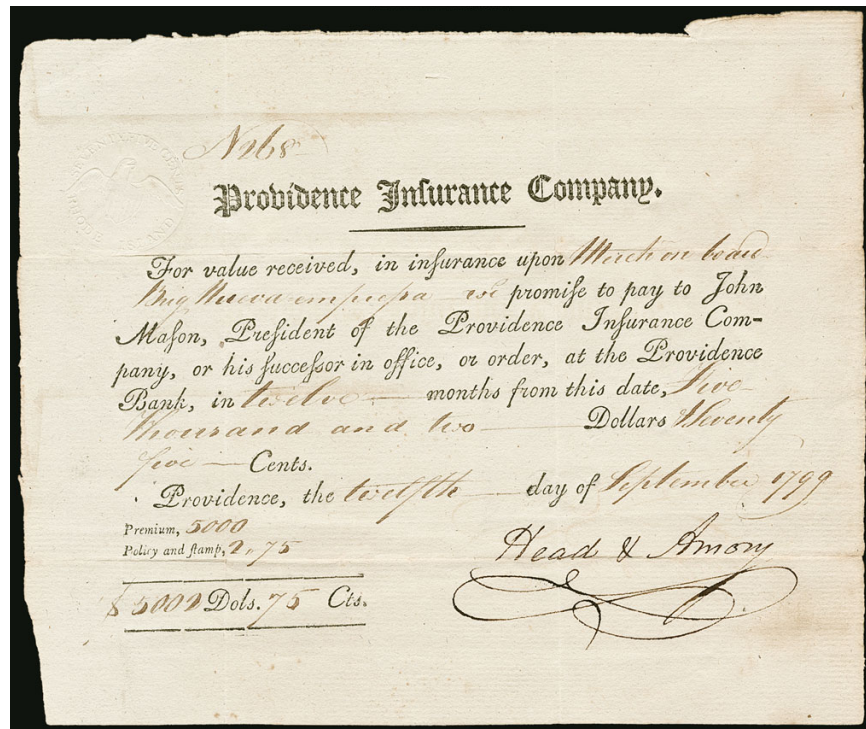 No 268
Providence Inſurance Company.
For value received, in inſurance upon Merch on board
Brig Nueva empreſa we promiſe to pay to John
Maſon, Preſident of the Providence Inſurance Com-
pany, or his ſucceſſor in office, or order, at the Providence
Bank, in twelve months from this date, Five
thousand and two Dollars & Seventy
five Cents.
Providence, the twelfth day of September 1799
Premium, 5000
Policy and ſtamp, 2.75
$ 5002 Dols. 75 Cts.
Head & Amory